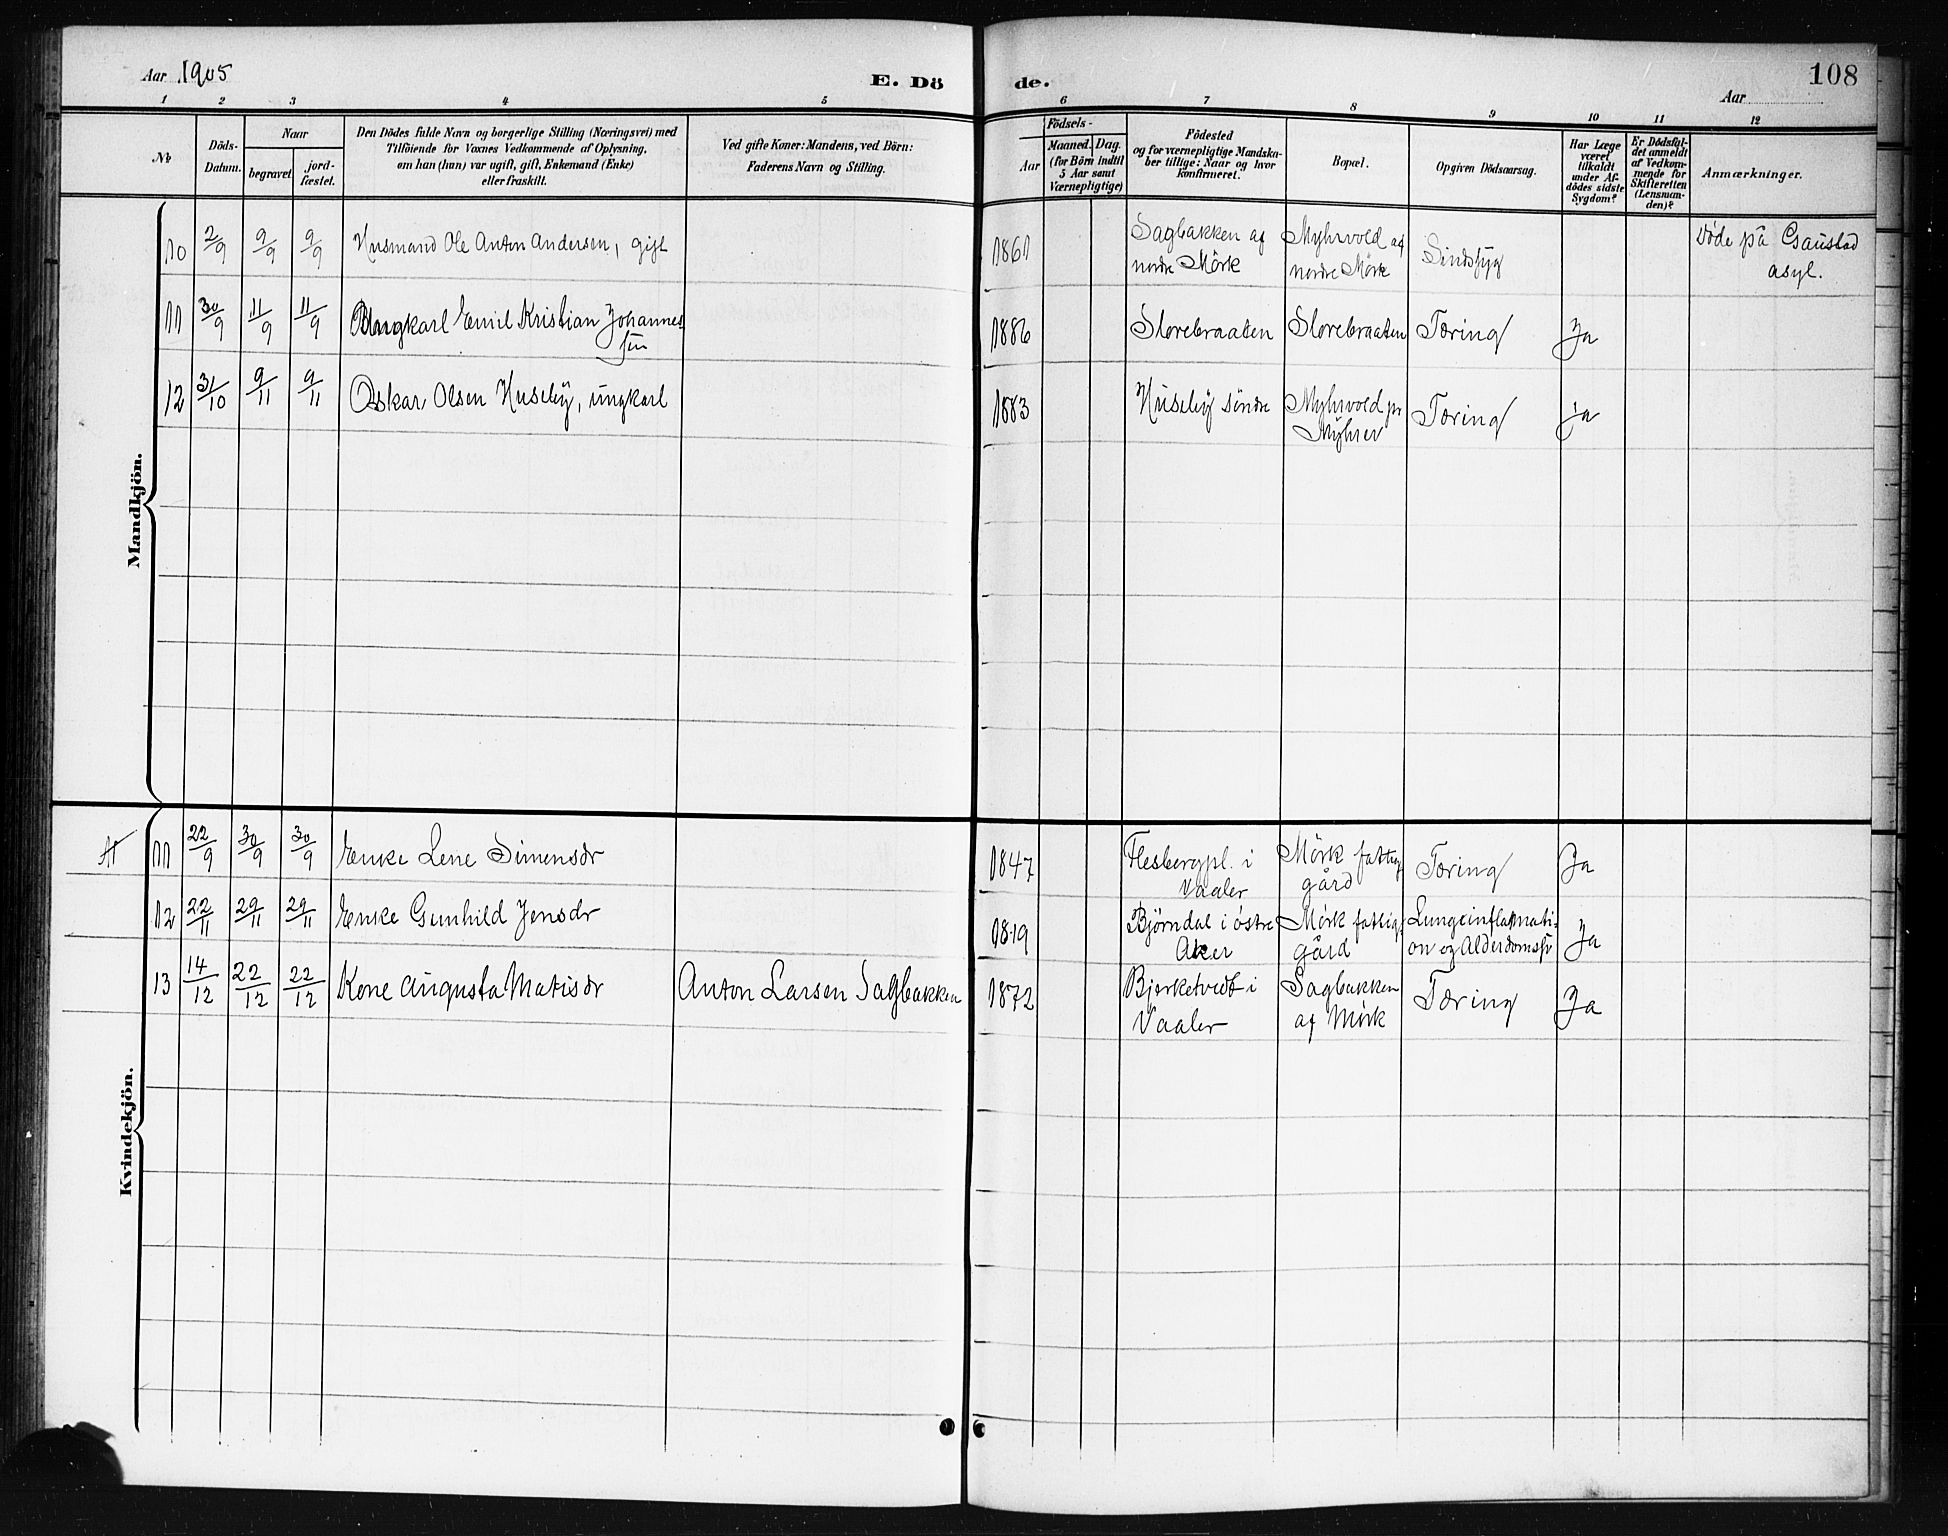 Aar 1905
E. Dö
de.
108
Aar
1 2 3 4 5
6 7 8 9 10 11 12
No
Döds-
Datum.
Naar
begravet.
jord-
fæstet.
Den Dödes fulde Navn og borgerlige Stilling (Næringsvei) med
Tilföiende for Voxnes Vedkommende af Oplysning,
om han (hun) var ugift, gift, Enkemand (Enke)
eller fraskilt.
Ved gifte Koner: Mandens, ved Börn:
Faderens Navn og Stilling.
Födsels-
Aar
Maaned.
Dag.
(for Börn indtil
5 Aar samt
Værnepligtige)
Födested
og for værnepligtige Mandska-
ber tillige: Naar og hvor
konfirmeret.
Bopæl.
Opgiven Dödsaarsag.
Har Læge
været
tilkaldt
under Af-
dödes sidste
Sygdom?
Er Dödsfal-
det anmeldt
af Vedkom-
mende for
Skifteretten
(Lensman-
den)?
Anmærkninger.
Mandkjön.
10 2/9 9/9 9/9 Husmand Ole Anton Andersen, gift 1861 Sagbakken af
nordre Mörk
Myhrvold af
nordre Mörk
Sindssyg
Döde på Gaustad
asyl.
11 30/9 11/9 11/9 Ungkarl Emil Kristian Johannes
sen
1886 Storebraaten Storebraaten Tæring Ja
12 31/10 9/11 9/11 Oskar Olsen Huseby, ungkarl 1883 Huseby söndre Myhrvold pr
Myhrer
Tæring ja
Kvindekjön.
11 22/9 30/9 30/9 Enke Lene Simensdr 1847 Flesbergpl. i
Vaaler
Mörk fattig
gård
Tæring Ja
12 22/11 29/11 29/11 Enke Gunhild Jensdr 1819 Bjørndal i østre
Aker
Mörk fattig
gård
Lungeinflamati-
on og Alderdomssv
Ja
13 14/12 22/12 22/12 Kone Augusta Matisdr Anton Larsen Sagbakken 1872 Bjerketvedt i
Vaaler
Sagbakken
af Mörk
Tæring Ja